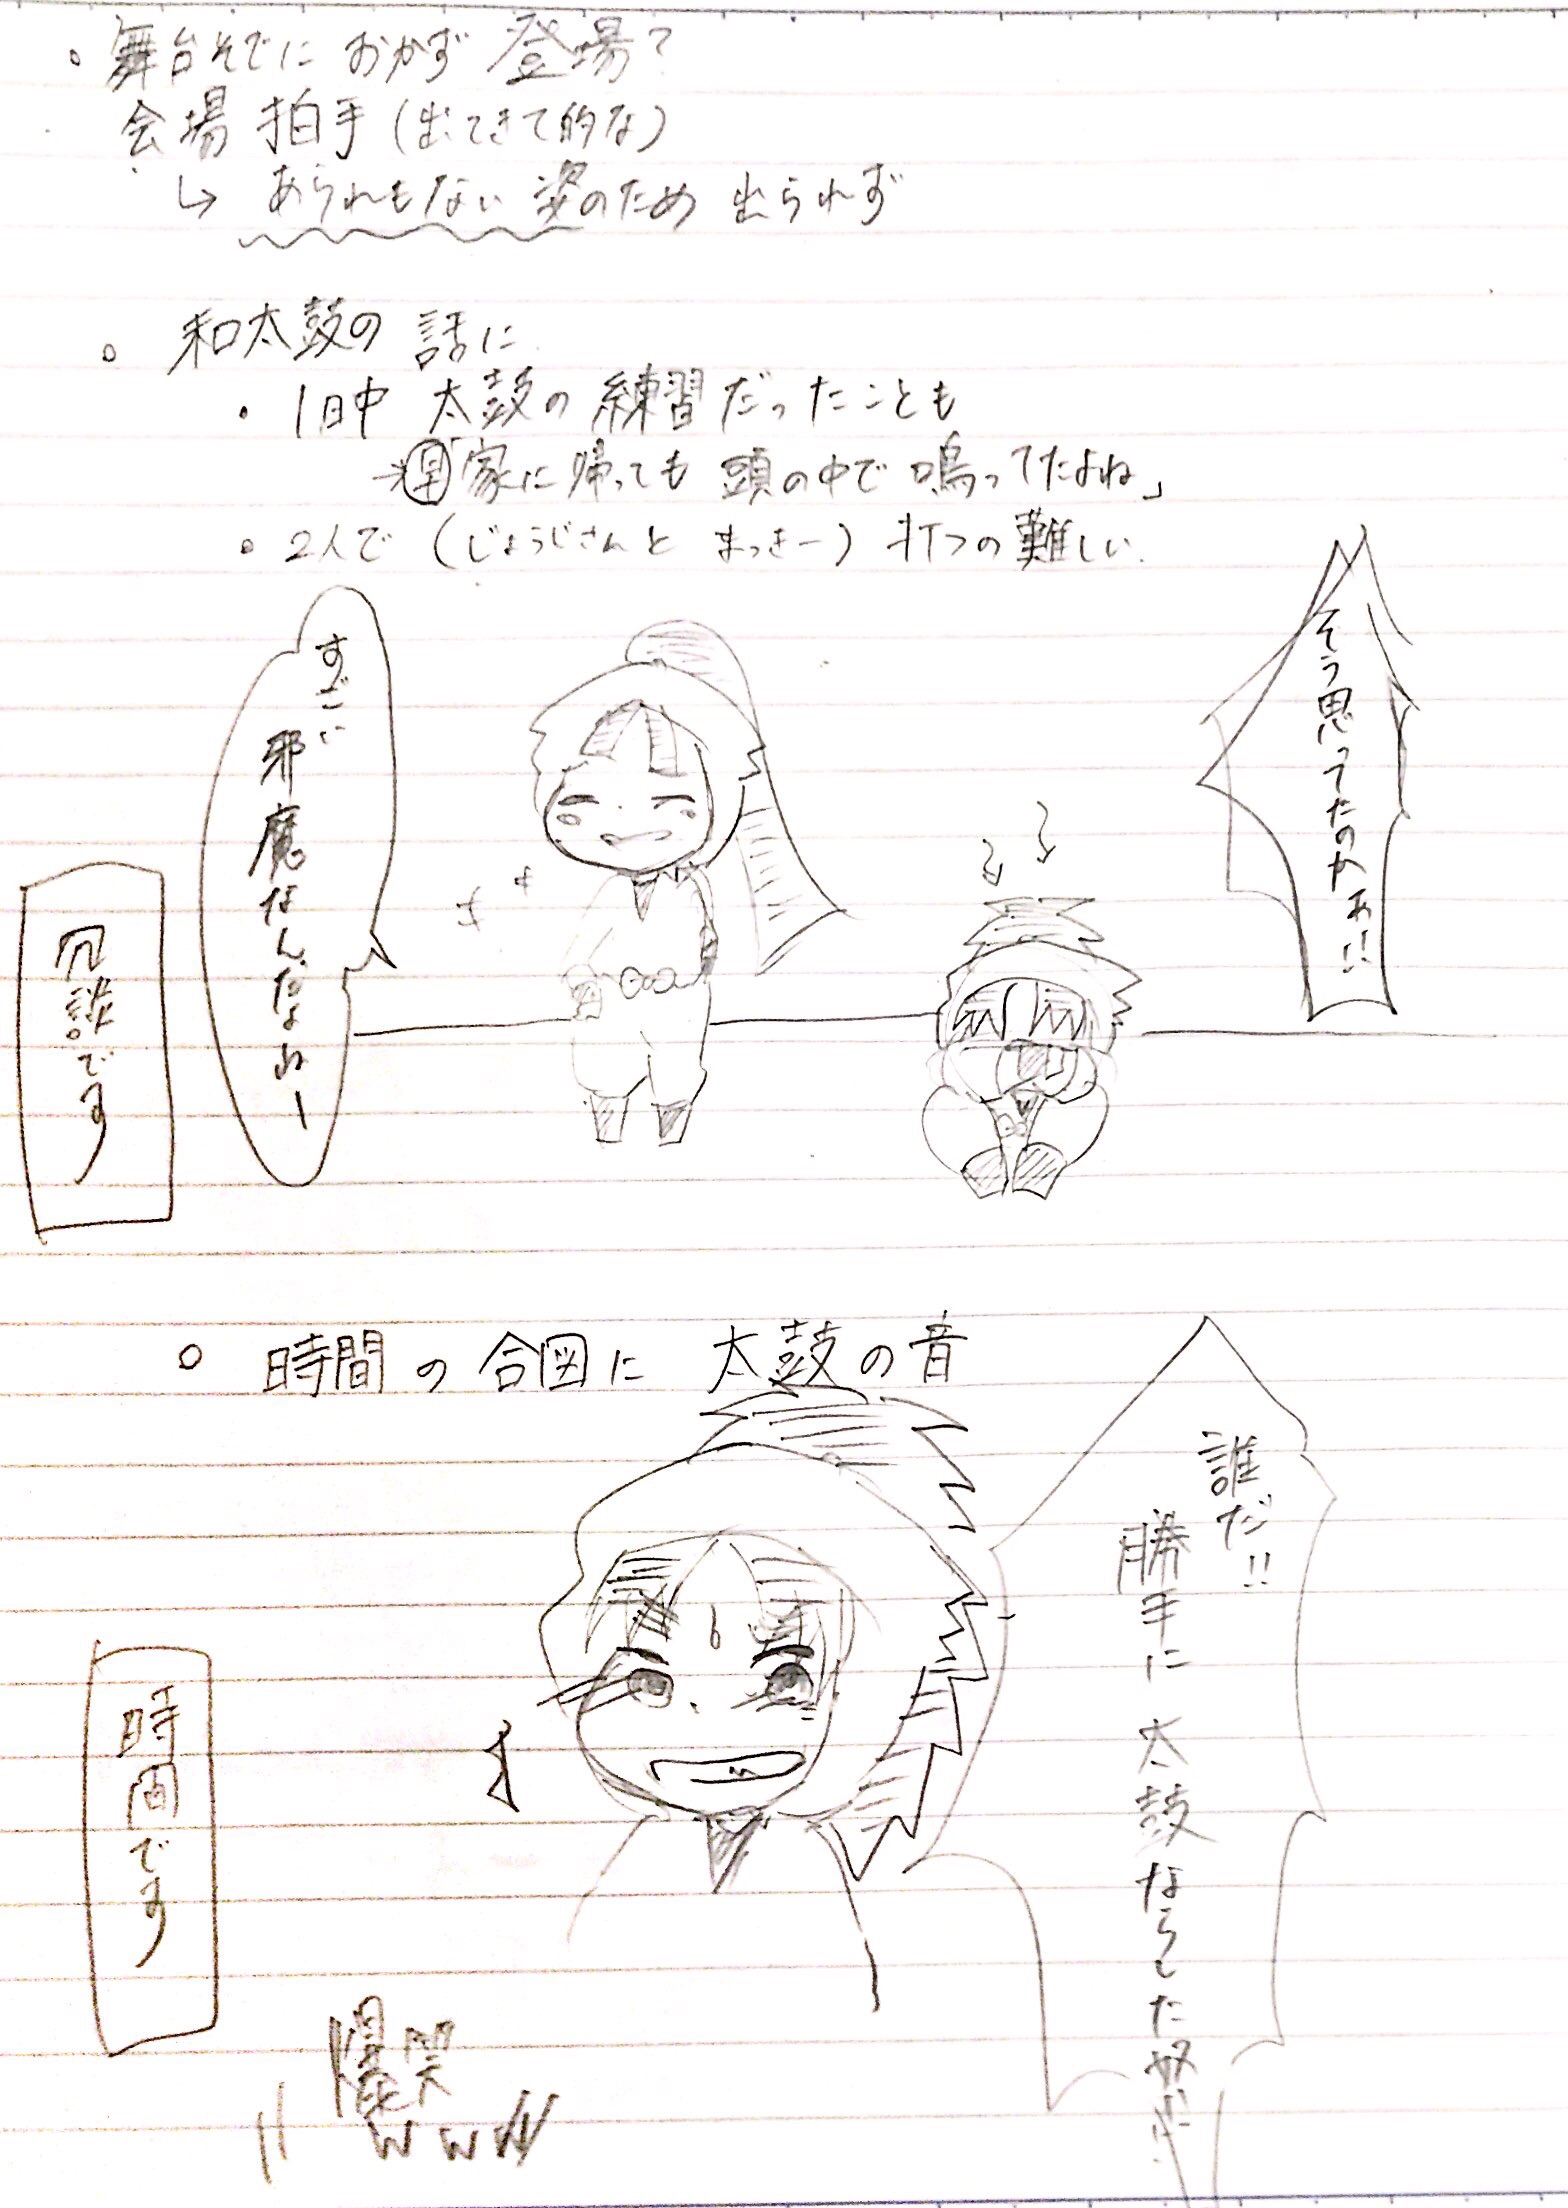 。舞台そでに おかず 登場?
会場 拍手(出てきて的な)
↳ あられもない姿のため 出られず
。和太鼓の 話に
・1日中 太鼓の練習だったことも
→早「家に帰っても 頭の中で 鳴ってたよね」
。2人で(じょうじさんと まっきー)打つの難しい
そう思ってたのかぁ!!
すごい
邪魔なんだよねー
冗談です
。時間の合図に 太鼓の音
誰だ!!
勝手に 太鼓ならした奴
時間です
爆笑
www